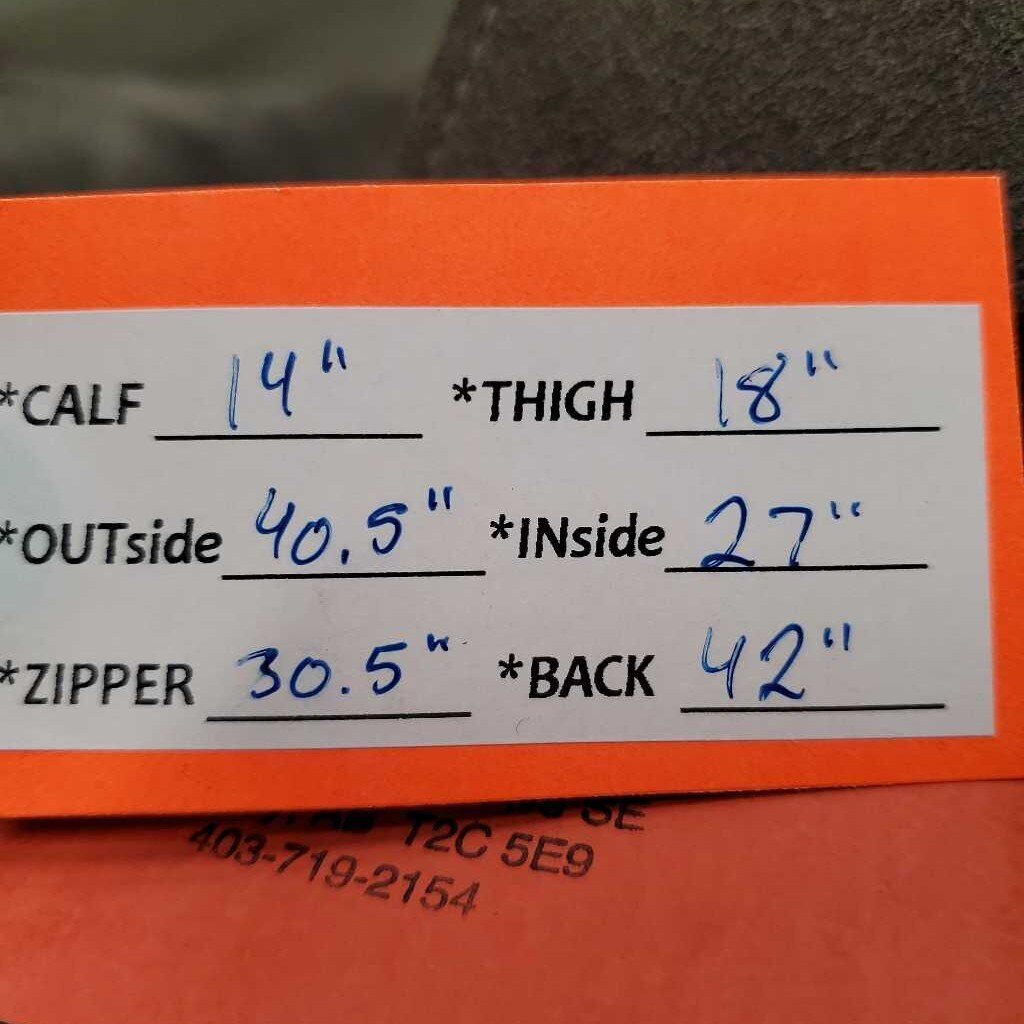 *CALF 14" *THIGH 18"
*OUTside 40.5" *INside 27"
*ZIPPER 30.5" *BACK 42"
SE
T2C 5E9
403-719-2154